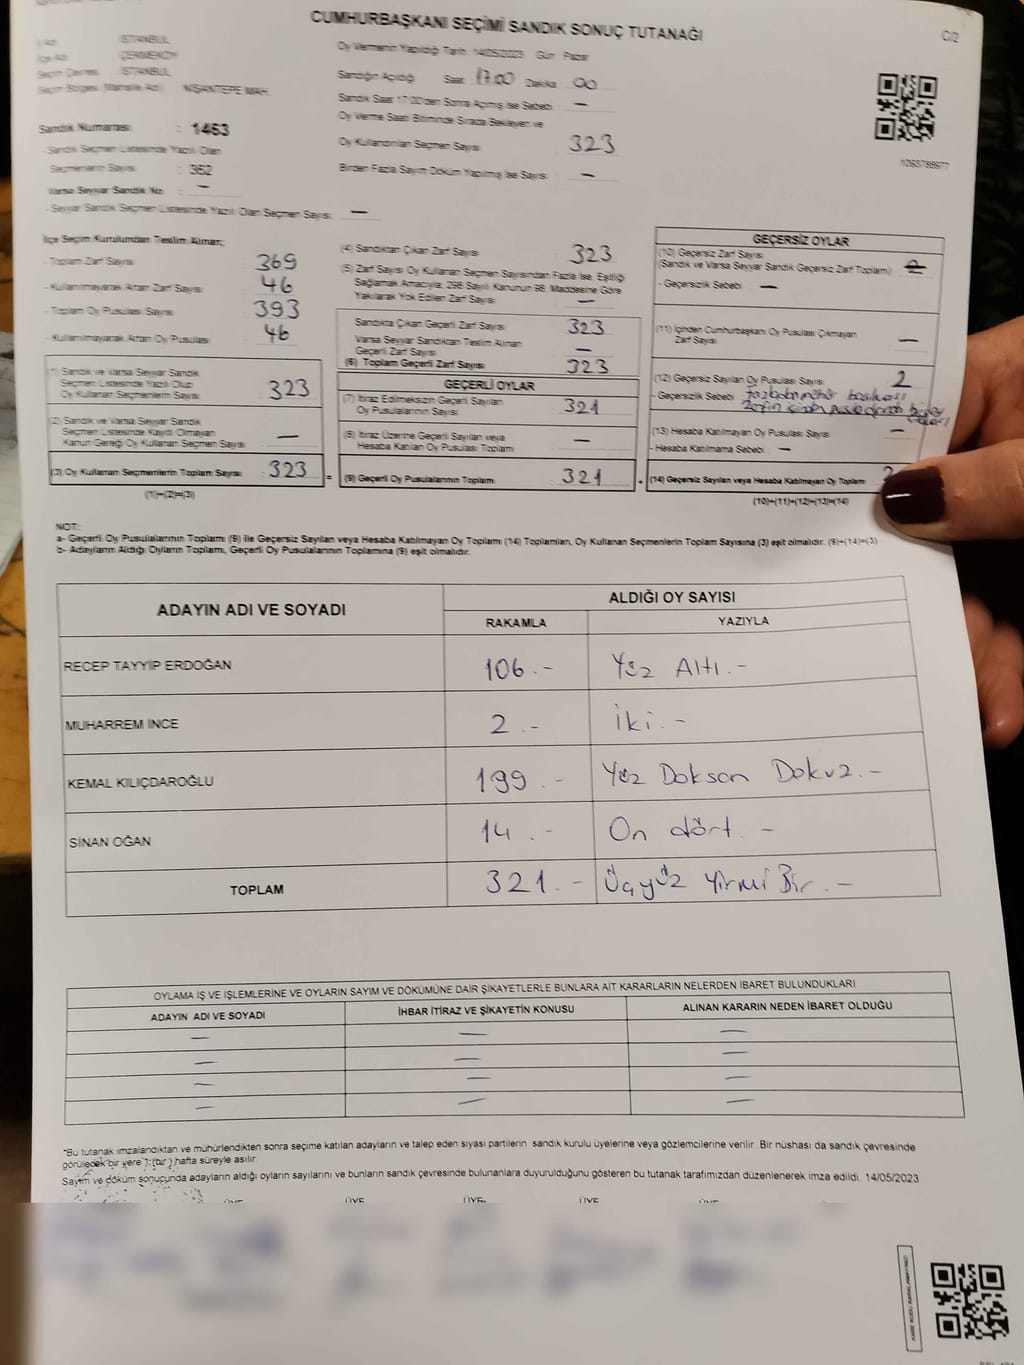 CUMHURBAŞKANI SEÇİMİ SANDIK SONUÇ TUTANAĞI
C/2
İSTANBUL
ÇEKMEKÖY
İSTANBUL
NİŞANTEPE MAH.
Oy Vermenin Yapıldığı Tarih 14/05/2023 Gün Pazar
Sandığın Açıldığı Saat 17.00 Dakika 00
Sandık Saat 17:00'den Sonra Açılmış İse Sebebi —
Oy Verme Saati Bitiminde Sırada Bekleyen ve
Oy Kullandırılan Seçmen Sayısı 323
Birden Fazla Sayım Döküm Yapılmış İse Sayısı —
Sandık Numarası : 1463
- Sandık Seçmen Listesinde Yazılı Olan
Seçmenlerin Sayısı : 352
Varsa Seyyar Sandık No : —
- Seyyar Sandık Seçmen Listesinde Yazılı Olan Seçmen Sayısı —
İlçe Seçim Kurulundan Teslim Alınan;
- Toplam Zarf Sayısı 369
- Kullanılmayarak Artan Zarf Sayısı 46
- Toplam Oy Pusulası Sayısı 393
- Kullanılmayarak Artan Oy Pusulası 46
(1) Sandık ve Varsa Seyyar Sandık
Seçmen Listesinde Yazılı Olup
Oy Kullanan Seçmenlerin Sayısı 323
(2) Sandık ve Varsa Seyyar Sandık
Seçmen Listesinde Kayıtlı Olmayan
Kanun Gereği Oy Kullanan Seçmen Sayısı —
(3) Oy Kullanan Seçmenlerin Toplam Sayısı 323
(1)+(2)=(3)
(4) Sandıktan Çıkan Zarf Sayısı 323
(5) Zarf Sayısı Oy Kullanan Seçmen Sayısından Fazla İse, Eşitliği
Sağlamak Amacıyla; 298 Sayılı Kanunun 98. Maddesine Göre
Yakılarak Yok Edilen Zarf Sayısı —
Sandıkta Çıkan Geçerli Zarf Sayısı 323
Varsa Seyyar Sandıktan Teslim Alınan
Geçerli Zarf Sayısı —
(6) Toplam Geçerli Zarf Sayısı 323
GEÇERLİ OYLAR
(7) İtiraz Edilmeksizin Geçerli Sayılan
Oy Pusulalarının Sayısı 321
(8) İtiraz Üzerine Geçerli Sayılan veya
Hesaba Katılan Oy Pusulası Toplamı —
= (9) Geçerli Oy Pusulalarının Toplamı 321 +
GEÇERSİZ OYLAR
(10) Geçersiz Zarf Sayısı
(Sandık ve Varsa Seyyar Sandık Geçersiz Zarf Toplamı)
- Geçersizlik Sebebi —
(11) İçinden Cumhurbaşkanı Oy Pusulası Çıkmayan
Zarf Sayısı —
(12) Geçersiz Sayılan Oy Pusulası Sayısı 2
- Geçersizlik Sebebi
(13) Hesaba Katılmayan Oy Pusulası Sayısı —
- Hesaba Katılmama Sebebi —
(14) Geçersiz Sayılan veya Hesaba Katılmayan Oy Toplam
(10)+(11)+(12)+(13)=(14)
NOT:
a- Geçerli Oy Pusulalarının Toplamı (9) ile Geçersiz Sayılan veya Hesaba Katılmayan Oy Toplamı (14) Toplamları, Oy Kullanan Seçmenlerin Toplam Sayısına (3) eşit olmalıdır. (9)+(14)=(3)
b- Adayların Aldığı Oyların Toplamı, Geçerli Oy Pusulalarının Toplamına (9) eşit olmalıdır.
ADAYIN ADI VE SOYADI
ALDIĞI OY SAYISI
RAKAMLA YAZIYLA
RECEP TAYYİP ERDOĞAN 106.- Yüz Altı.-
MUHARREM İNCE 2.- İki.-
KEMAL KILIÇDAROĞLU 199.- Yüz Doksan Dokuz.-
SİNAN OĞAN 14.- On dört.-
TOPLAM 321.- Üçyüz Yirmi Bir.-
OYLAMA İŞ VE İŞLEMLERİNE VE OYLARIN SAYIM VE DÖKÜMÜNE DAİR ŞİKAYETLERLE BUNLARA AİT KARARLARIN NELERDEN İBARET BULUNDUKLARI
ADAYIN ADI VE SOYADI İHBAR İTİRAZ VE ŞİKAYETİN KONUSU ALINAN KARARIN NEDEN İBARET OLDUĞU
— — —
— — —
— — —
— — —
*Bu tutanak imzalandıktan ve mühürlendikten sonra seçime katılan adayların ve talep eden siyasi partilerin sandık kurulu üyelerine veya gözlemcilerine verilir. Bir nüshası da sandık çevresinde
görülecek bir yere 1 (bir) hafta süreyle asılır.
Sayım ve döküm sonucunda adayların aldığı oyların sayılarını ve bunların sandık çevresinde bulunanlara duyurulduğunu gösteren bu tutanak tarafımızdan düzenlenerek imza edildi. 14/05/2023
ÜYE ÜYE ÜYE ÜYE ÜYE